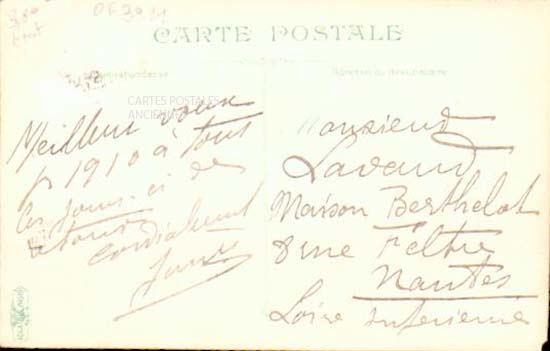 CARTE POSTALE
Correspondance
Adresse du destinataire
CARTES POSTALES
ANCIENNES
Meilleurs voeux
pr 1910 à tous
ces jours-ci de
cordialement
Monsieur
Lavaud
Maison Berthelot
8 rue Feltre
Nantes
Loire Inférieure